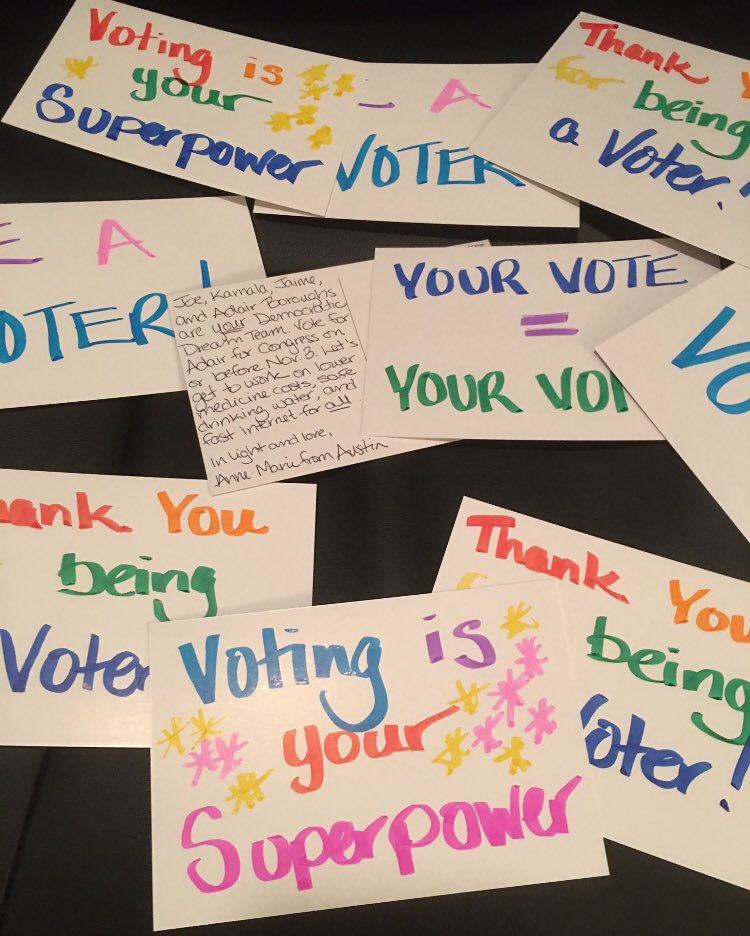 Voting is
your
Superpower
A
VOTER!
Thank
for being
a Voter!
A
OTER!
Joe, Kamala, Jaime,
and Adair Boroughs
are your Democratic
Dream Team. Vote for
Adair for Congress on
or before Nov. 3. Let's
get to work on lower
medicine costs, safe
drinking water, and
fast internet for all
In light and love,
Anne Marie from Austin
YOUR VOTE
=
YOUR VOI
VO
ank You
being
Voter
Thank You
being
Voter!
Voting is
your
Superpower